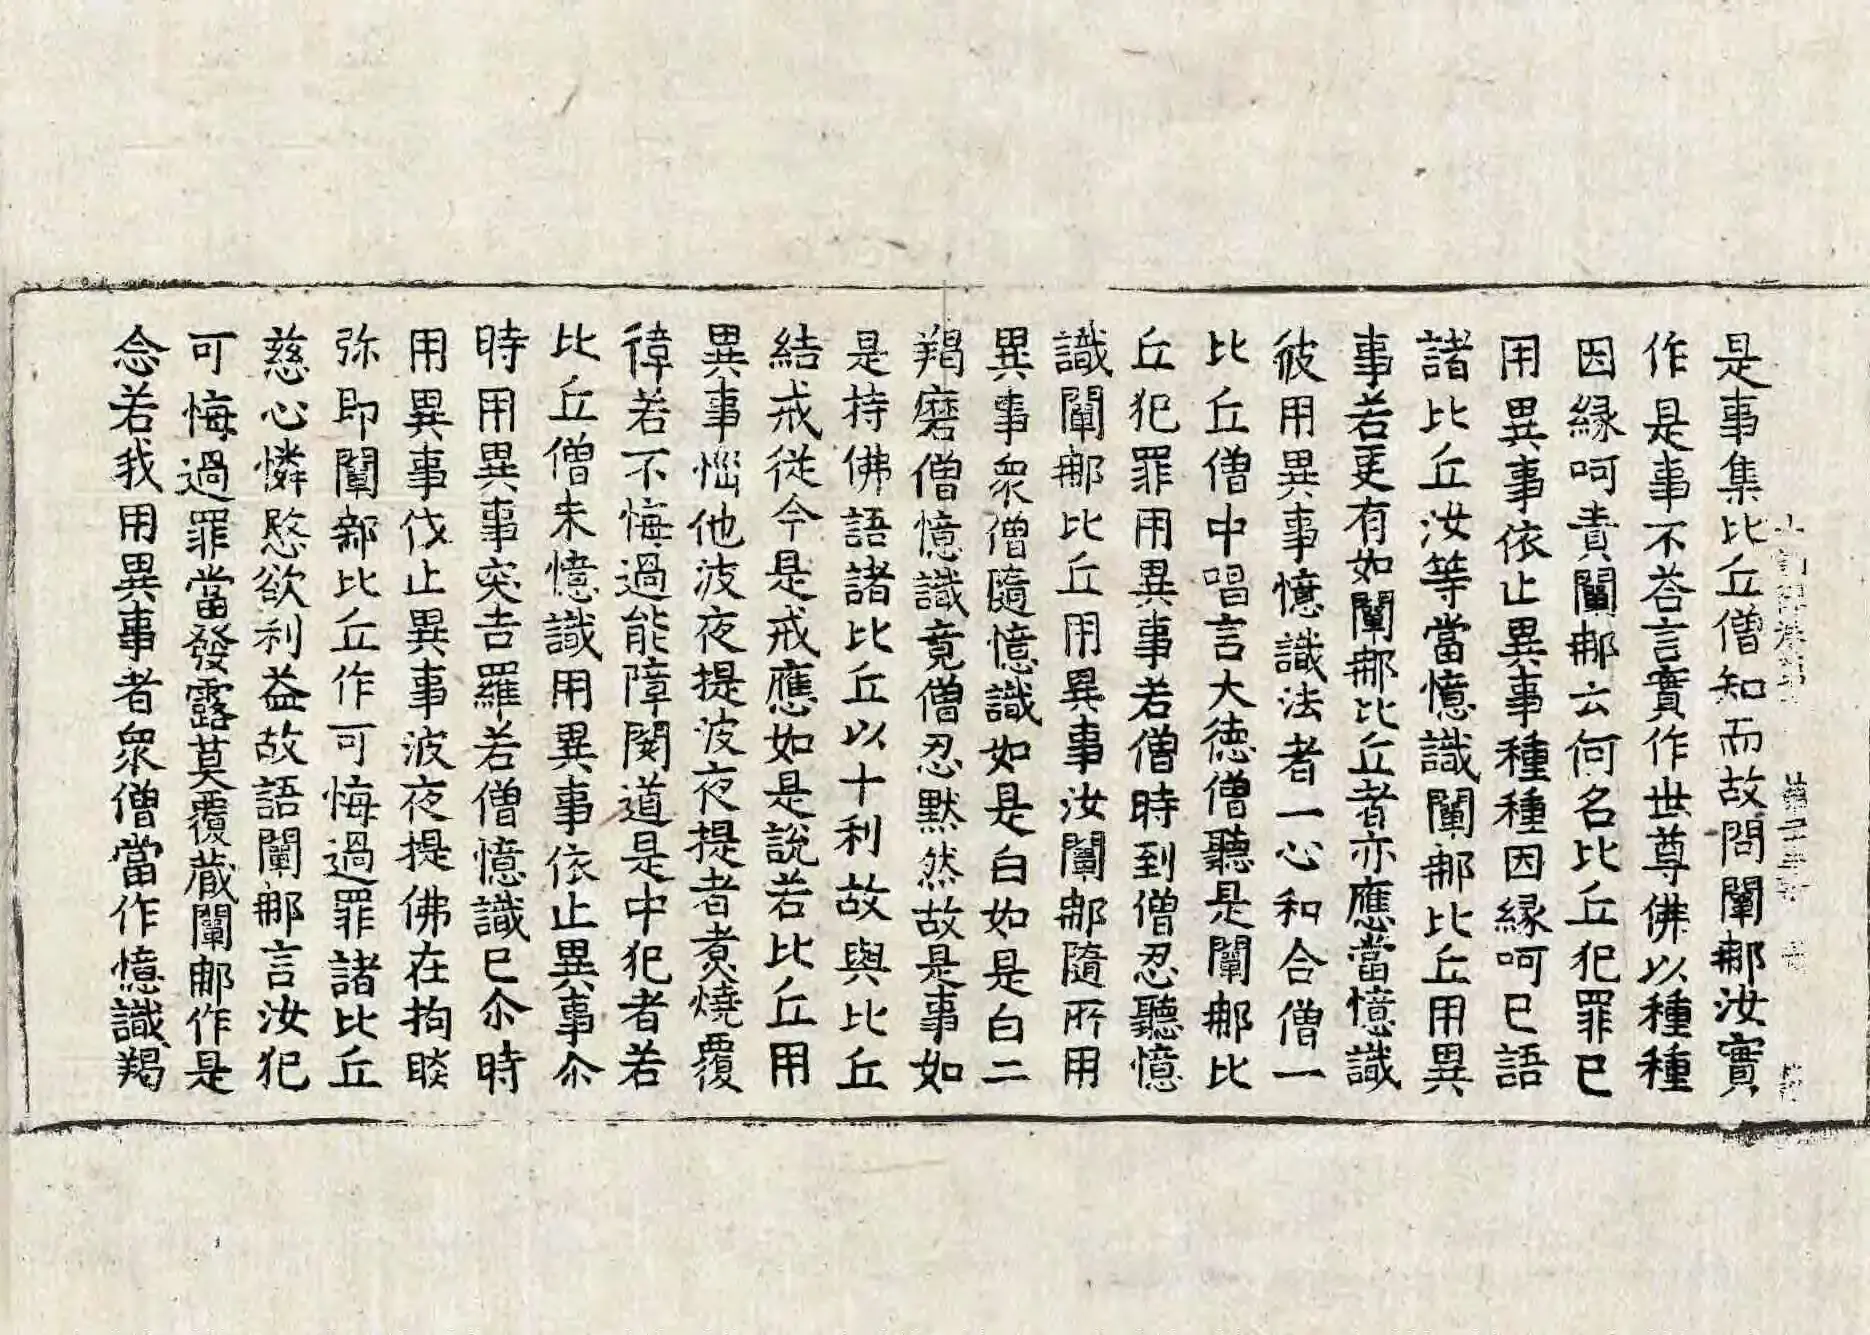 是事集比丘僧知而故問闡那汝實
作是事不荅言實作世尊佛以種種
因緣呵責闡那云何名比丘犯罪已
用異事依止異事種種因緣呵已語
諸比丘汝等當憶識闡那比丘用異
事若更有如闡那比丘者亦應當憶識
彼用異事憶識法者一心和合僧一
比丘僧中唱言大德僧聽是闡那比
丘犯罪用異事若僧時到僧忍聽憶
識闡那比丘用異事汝闡那隨所用
異事衆僧隨憶識如是白如是白二
羯磨僧憶識竟僧忍默然故是事如
是持佛語諸比丘以十利故與比丘
結戒從今是戒應如是說若比丘用
異事惱他波夜提波夜提者煑燒覆
徫若不悔過能障閡道是中犯者若
比丘僧未憶識用異事依止異事尒
時用異事突吉羅若僧憶識已尒時
用異事依止異事波夜提佛在拘睒
弥即闡那比丘作可悔過罪諸比丘
慈心憐愍欲利益故語闡那言汝犯
可悔過罪當發露莫覆藏闡那作是
念若我用異事者衆僧當作憶識羯